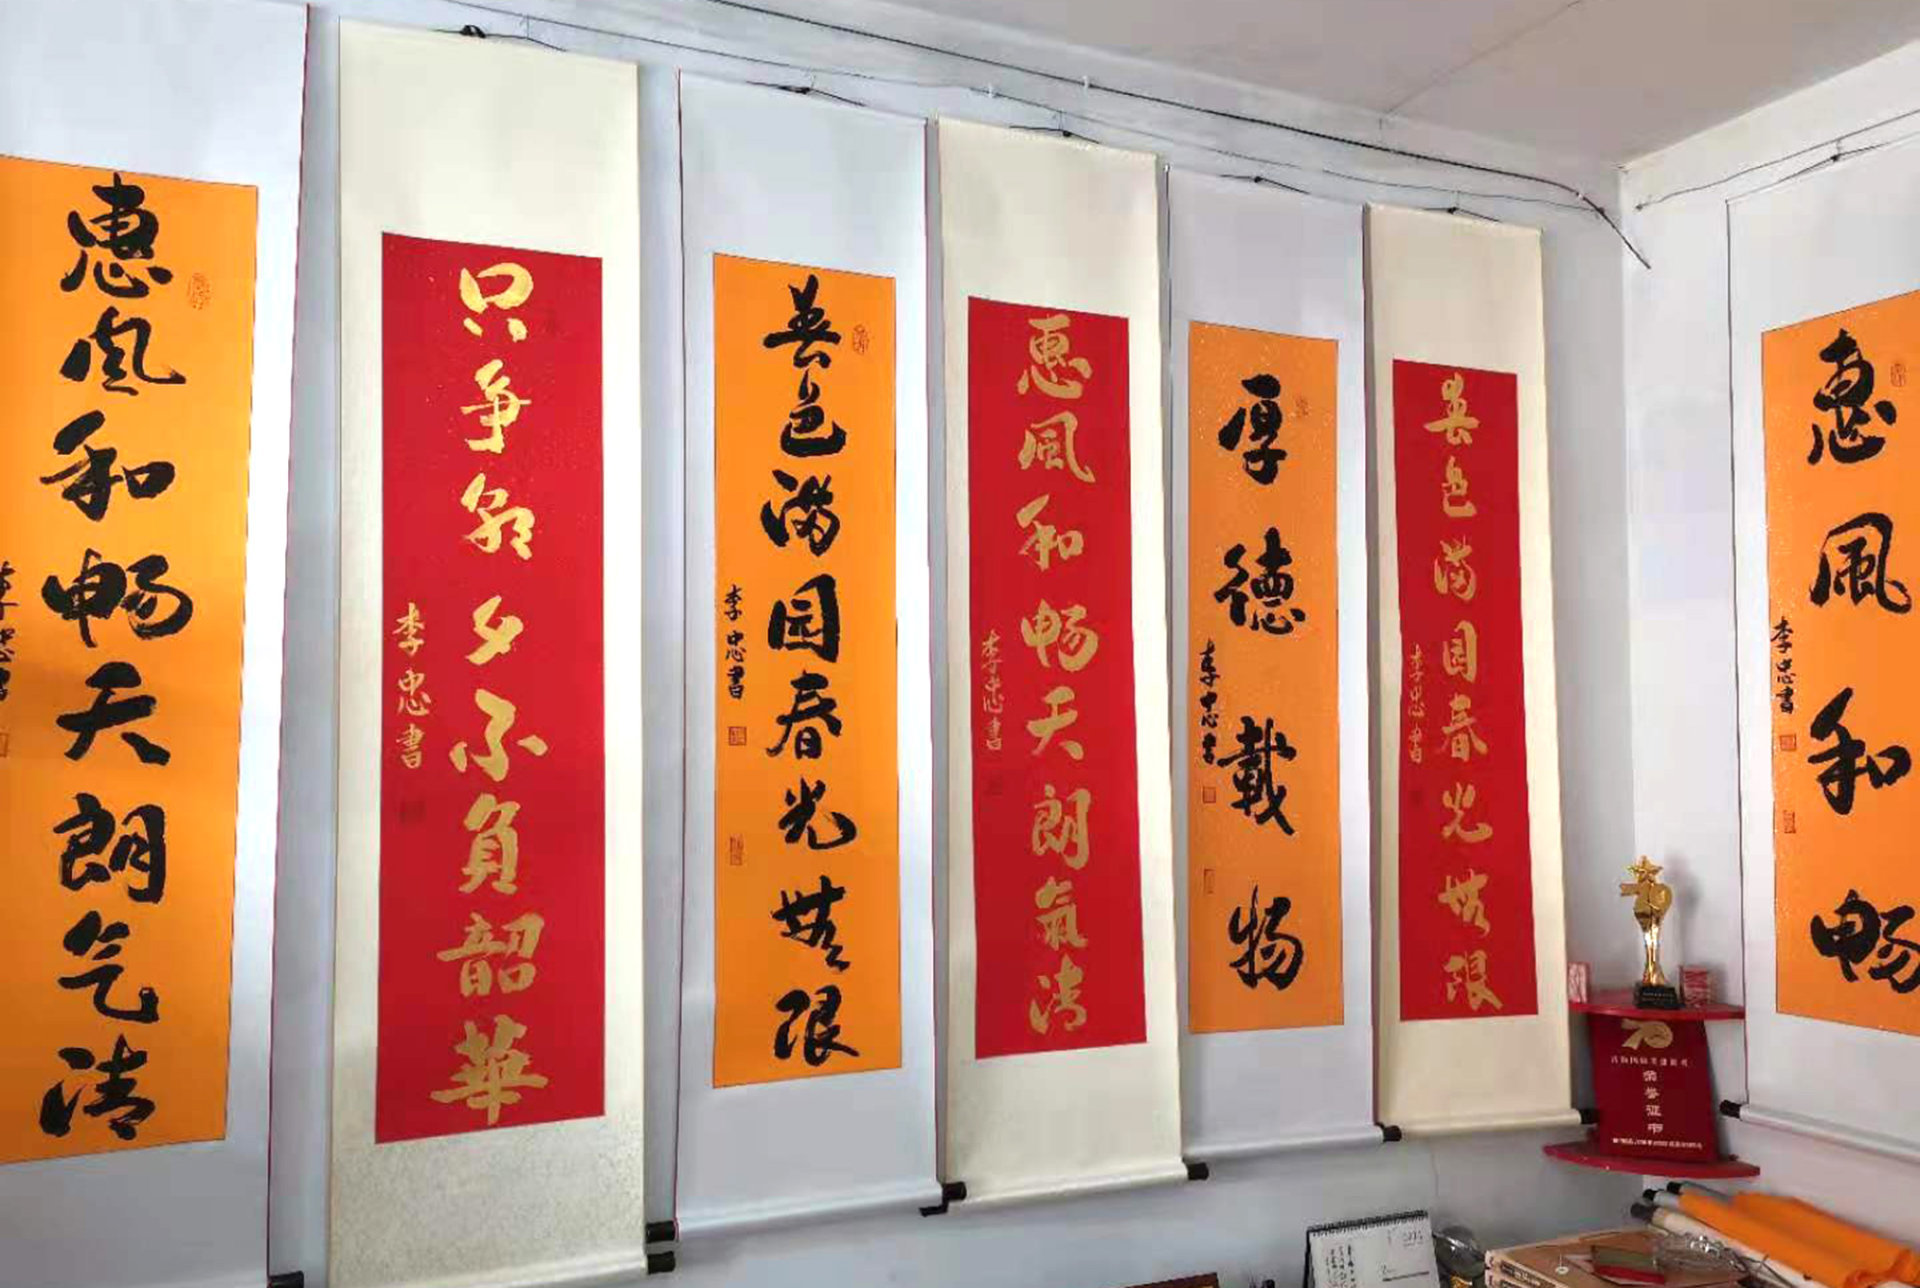 惠风和畅天朗气清
李忠書
只争朝夕不负韶華
李忠書
春色满园春光無限
李忠書
惠風和畅天朗氣清
李忠書
厚德載物
李忠書
春色满園春光無限
李忠書
惠風和畅
李忠書
70
荣誉证书